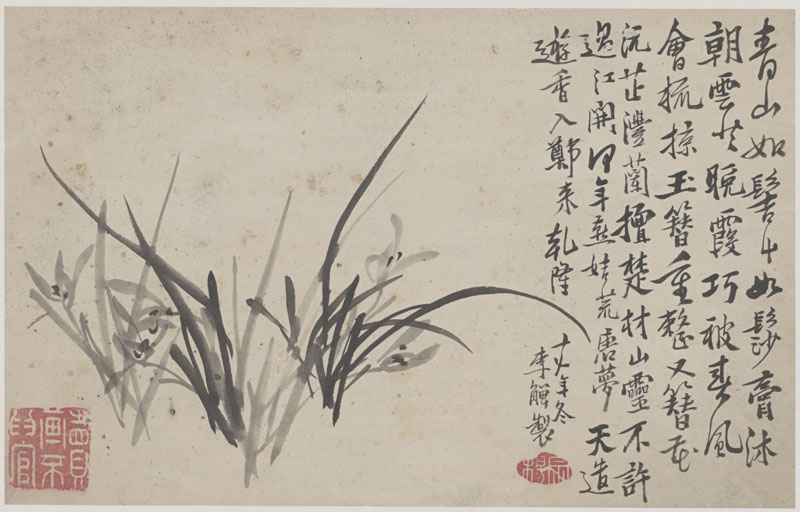 青山如髻斗如鬟膏沐
朝雲共晚霞巧被春風
會梳掠玉簪重整又簪花
沅芷灃蘭擅楚材山靈不許
過江開目年燕姞荒唐夢天造
遊香入鄭來乾隆
十八年冬
李觶製